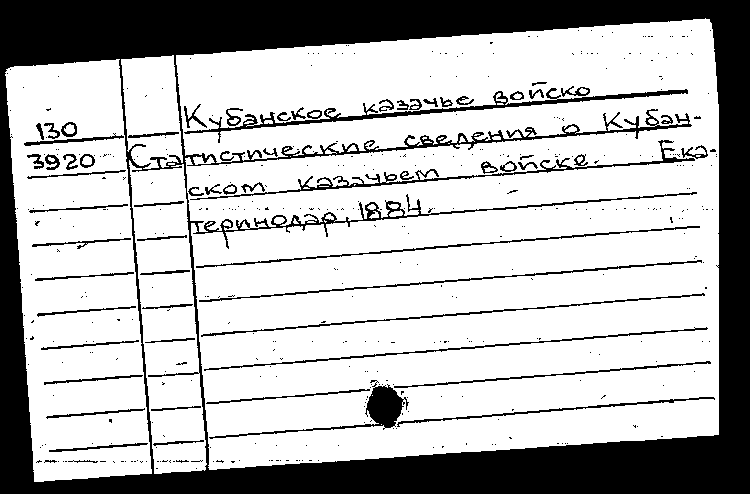 130 Кубанское казачье войско
3920 Статистические сведения о Кубан-
ском казачьем войске. Ека-
теринодар, 1884.